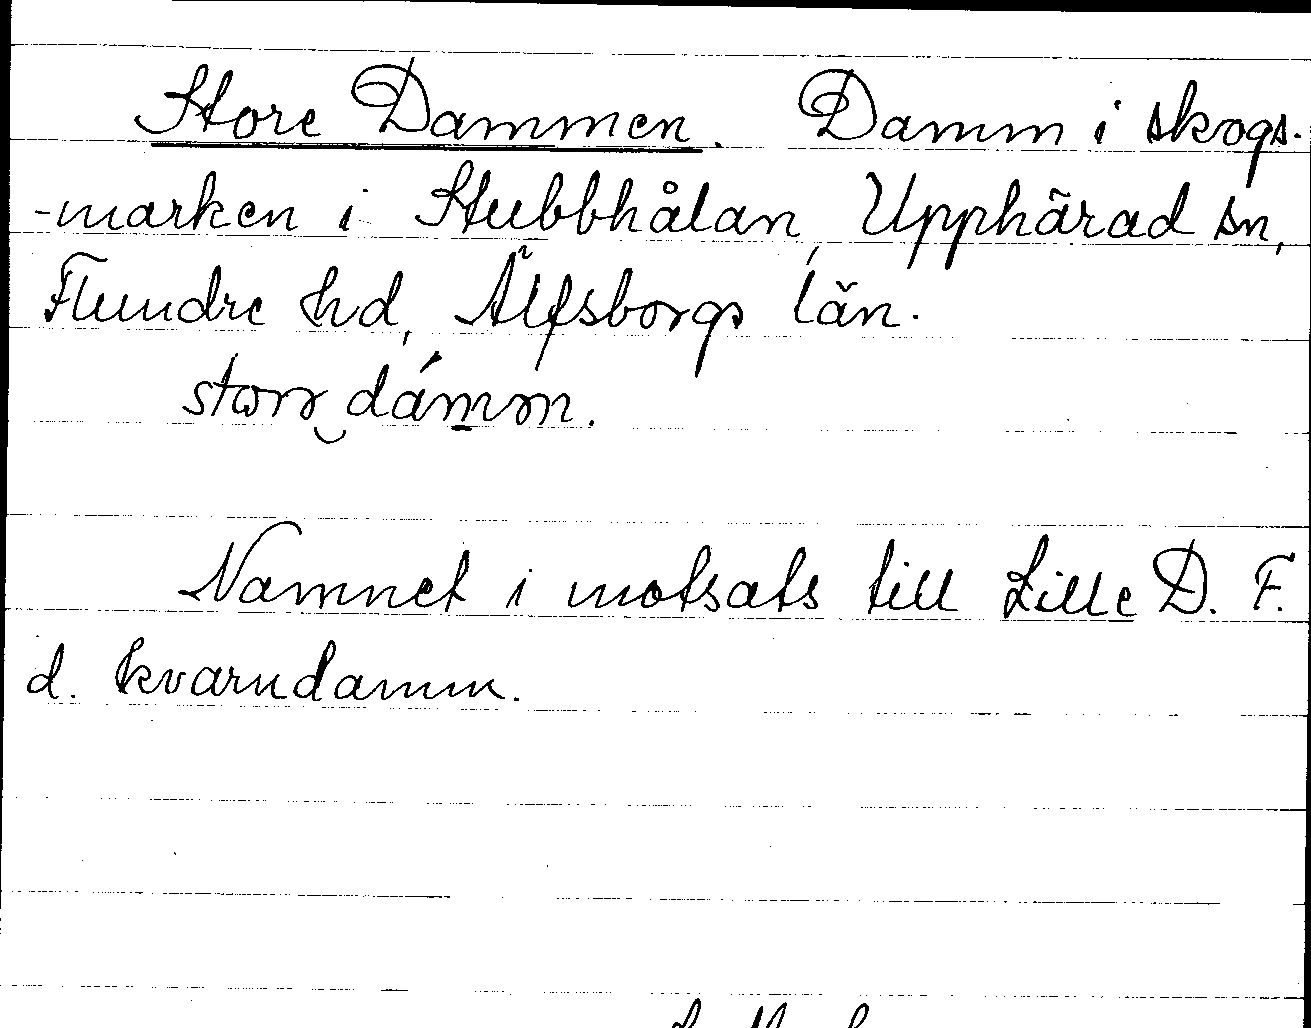 Store Dammen. Damm i skogs-
-marken i Stubbhålan, Upphärad sn,
Flundre hd, Älfsborgs län.
storr‿dámm.
Namnet i motsats till Lille D. F.
d. kvarndamm.